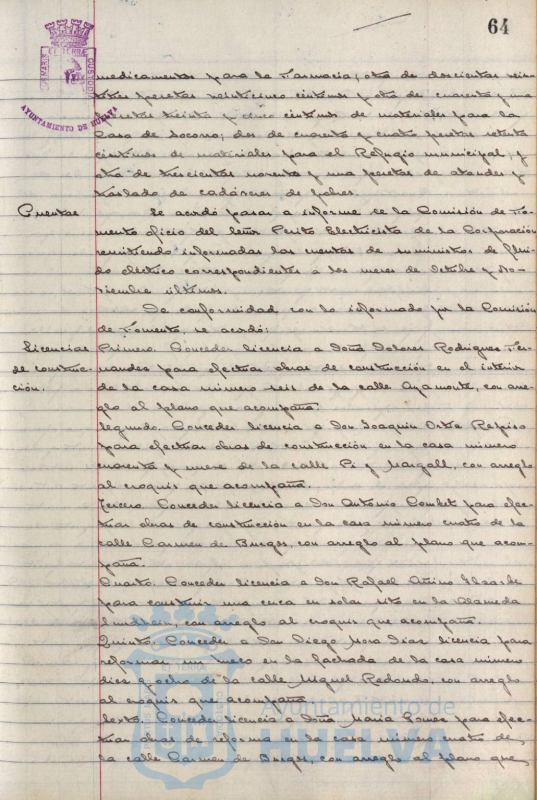 64
AYUNTAMIENTO DE HUELVA
medicamentos para la Farmacia; otra de doscientas
pesetas veinticinco céntimos y otra de cuarenta y una
pesetas treinta y cinco céntimos de materiales para la
Casa de Socorro; dos de cuarenta y cuatro pesetas setenta
céntimos de materiales para el Refugio municipal, y
otra de trescientas noventa y una pesetas de ataudes y
traslado de cadáveres de pobres.
Cuentas
Se acordó pasar a informe de la Comisión de Fo-
mento oficio del Señor Perito Electricista de la Corporación
remitiendo informadas las cuentas de suministros de flúi-
do eléctrico correspondientes a los meses de Octubre y No-
viembre últimos.
De conformidad con lo informado por la Comisión
de Fomento, se acordó:
Licencias
de construc-
ción.
Primero. Conceder licencia a Doña Dolores Rodriguez Fer-
nandez para efectuar obras de construcción en el interior
de la casa número seis de la calle Ayamonte, con arre-
glo al plano que acompaña.
Segundo. Conceder licencia a Don Joaquin Orta Rapiso
para efectuar obras de construcción en la casa número
cuarenta y nueve de la calle Pi y Margall, con arreglo
al croquis que acompaña.
Tercero. Conceder licencia a Don Antonio Combet para efec-
tuar obras de construcción en la casa número cuatro de la
calle Carmen de Burgos, con arreglo al plano que acom-
paña.
Cuarto. Conceder licencia a Don Rafael
para construir una en solar sito en la Alameda
con arreglo al croquis que acompaña.
Quinto. Conceder a Don Diego Mora Diaz licencia para
reformar un hueco en la fachada de la casa número
diez y ocho de la calle Miguel Redondo, con arreglo
al croquis que acompaña.
Sexto. Conceder licencia a Doña Maria Gomez para efec-
tuar obras de reforma en la casa número cuatro de
la calle Carmen de Burgos, con arreglo al plano que
Ayuntamiento de
HUELVA